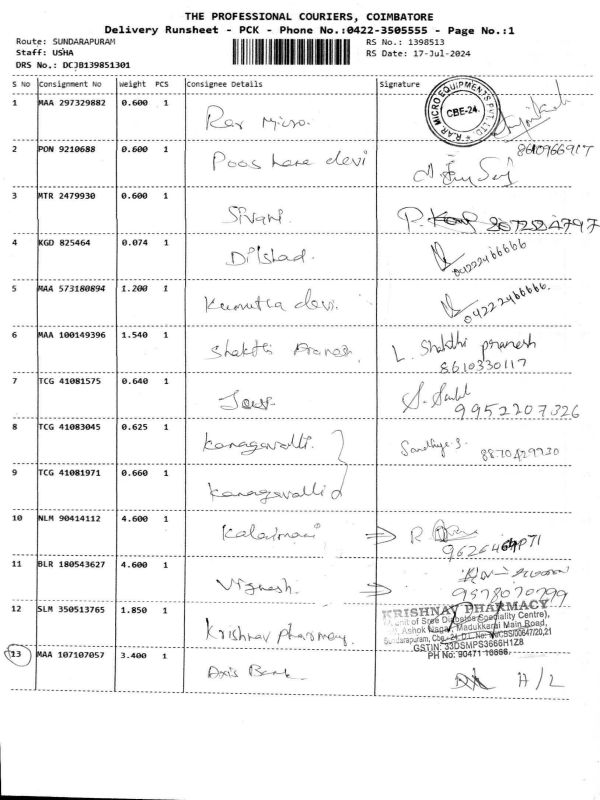 THE PROFESSIONAL COURIERS, COIMBATORE
Delivery Runsheet - PCK - Phone No.:0422-3505555 - Page No.:1
Route: SUNDARAPURAM
RS No.: 1398513
Staff: USHA
RS Date: 17-Jul-2024
DRS No.: DCJB139851301
S No Consignment No Weight PCS Consignee Details Signature
1 MAA 297329882 0.600 1 Rar Micro.
RAR MICRO EQUIPMENTS PVT. LTD
CBE-24.
8610966917
2 PON 9210688 0.600 1 Poos hare devi
3 MTR 2479930 0.600 1 Sivani.
4 KGD 825464 0.074 1 Dilshad. 04222466666
5 MAA 573180894 1.200 1 Kumutha devi. 04222466666.
6 MAA 100149396 1.540 1 Shakthi Pranesh L. Shakthi pranesh
8610330117
7 TCG 41081575 0.640 1
9952207326
8 TCG 41083045 0.625 1 Kanagavalli. Sandhya.S. 8870429730
9 TCG 41081971 0.660 1 Kanagavalli
10 NLM 90414112 4.600 1 Kalaimani
11 BLR 180543627 4.600 1 Vignesh
9578070799
12 SLM 350513765 1.850 1 Krishnav pharmacy
KRISHNAV PHARMACY
(Unit of Sree Diabetes Speciality Centre),
Ashok Nagar, Madukkarai Main Road,
Sundarapuram, Cbe-24.
GSTIN: 33DSMPS3666H1Z8
PH No: 90471 10666.
13 MAA 107107057 3.400 1 Axis Bank A/L